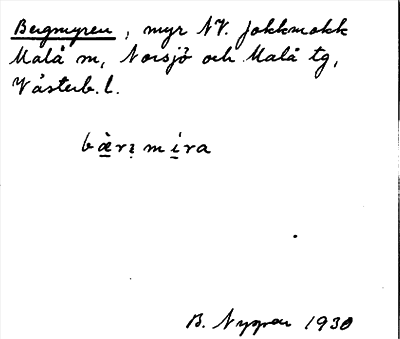 Bergmyren, myr NV. Jokkmokk
Malå m, Norsjö och Malå tg,
Västerb. l.
bæ̀rꝫ mira
B. Nygren 1930